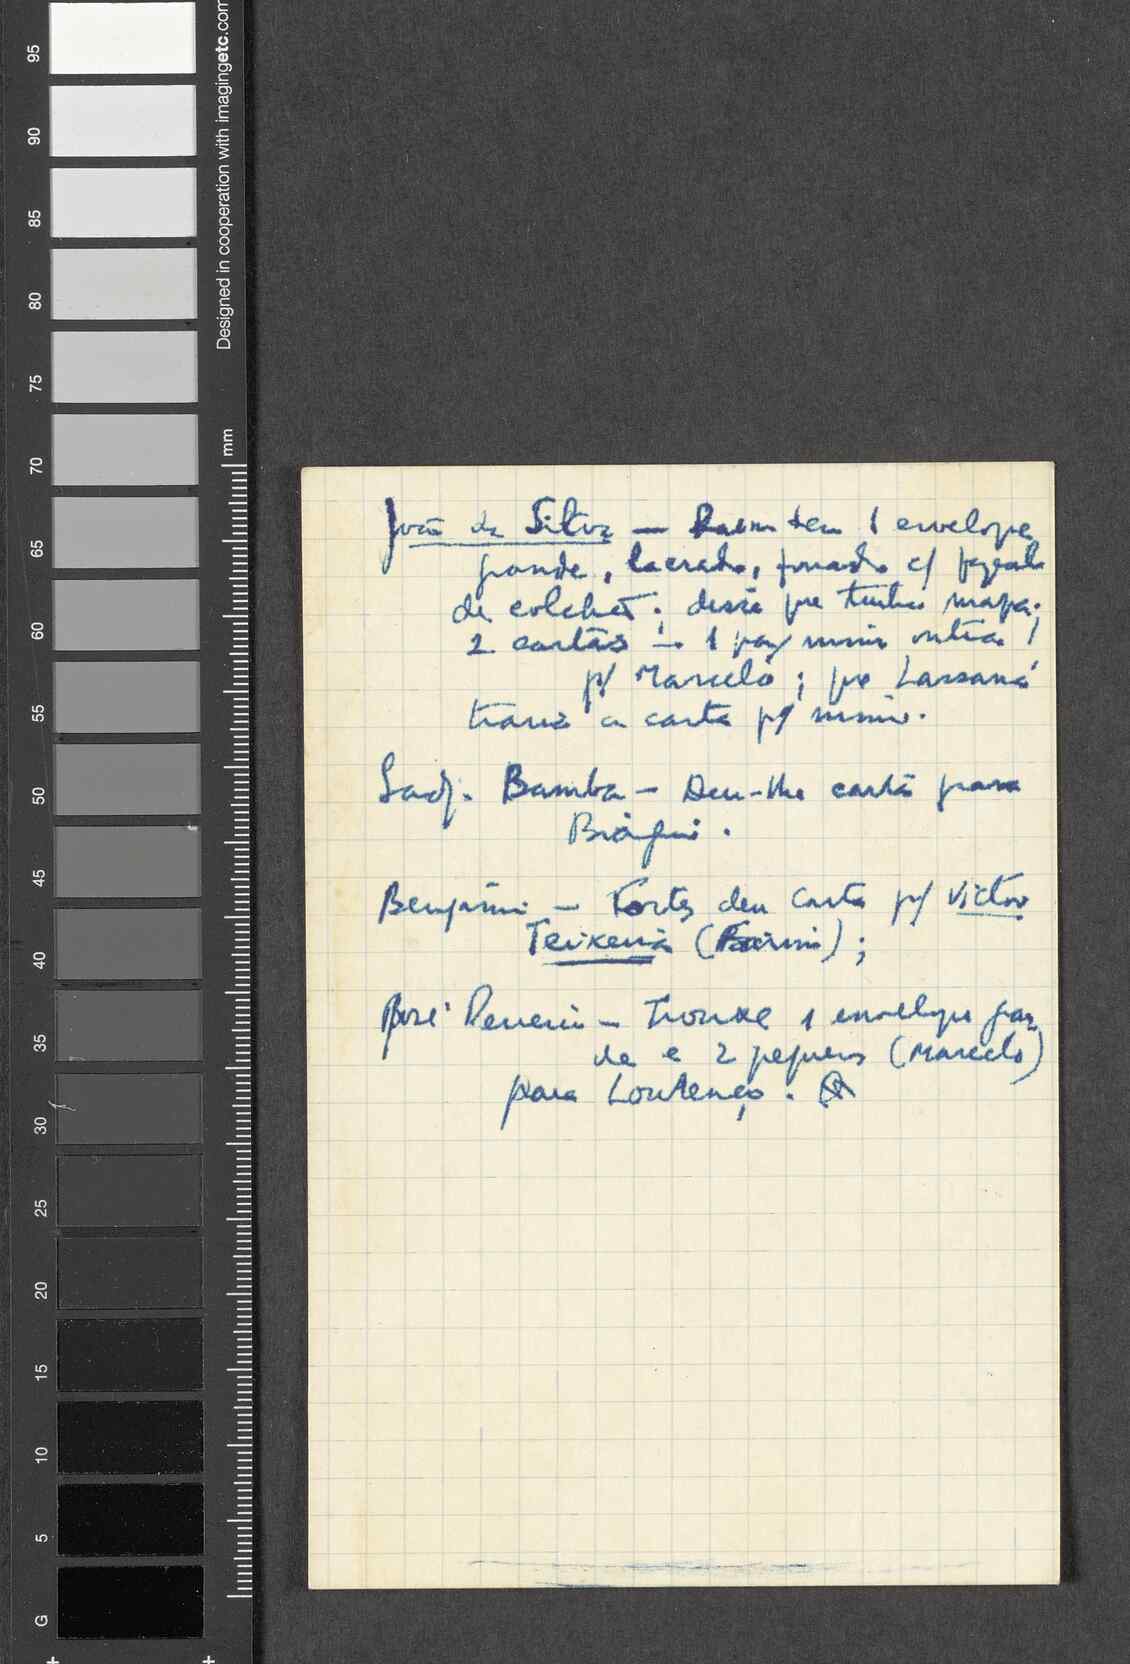 95
90
85
80
75
70
65
60
55
50
45
40
35
30
25
20
15
10
5
G
Designed in cooperation with imagingetc.com
mm
João da Silva — deu 1 envelope
grande, lacrado, c/
de colchet; disse que tinha mapa;
2 cartas — 1 para mim outra
p/ Marcelo; que Lassana
trazia a carta p/ mim.
Sadj. Bamba — Deu-lhe carta para
Biagui.
Benjamim — Fortes deu carta p/ Victor
Teixeira ( );
José — Trouxe 1 envelope gran
de e 2 pequenos (Marcelo)
para Lourenço.